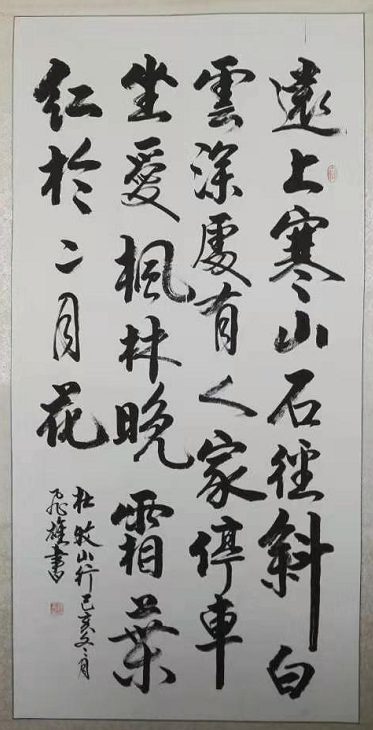 遠上寒山石徑斜白
雲深處有人家停車
坐愛楓林晚霜葉
红於二月花
杜牧山行己亥冬月
飛雄書